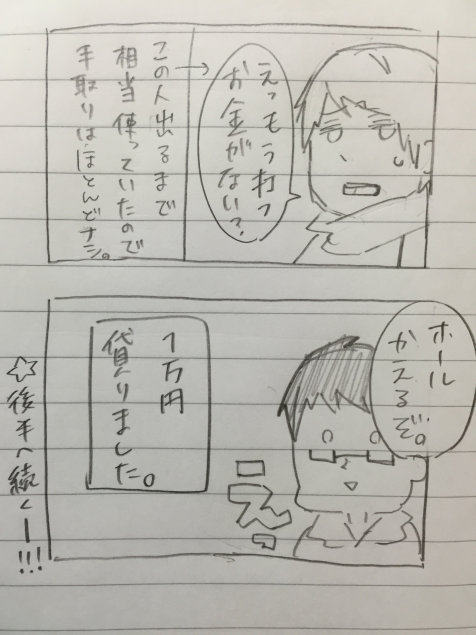 えっもう打つ
お金がない？
この人出るまで
相当使っていたので
手取りはほとんどナシ。
ホール
かえるぞ。
え。
1万円
貸りました。
☆後半へ続くー!!!